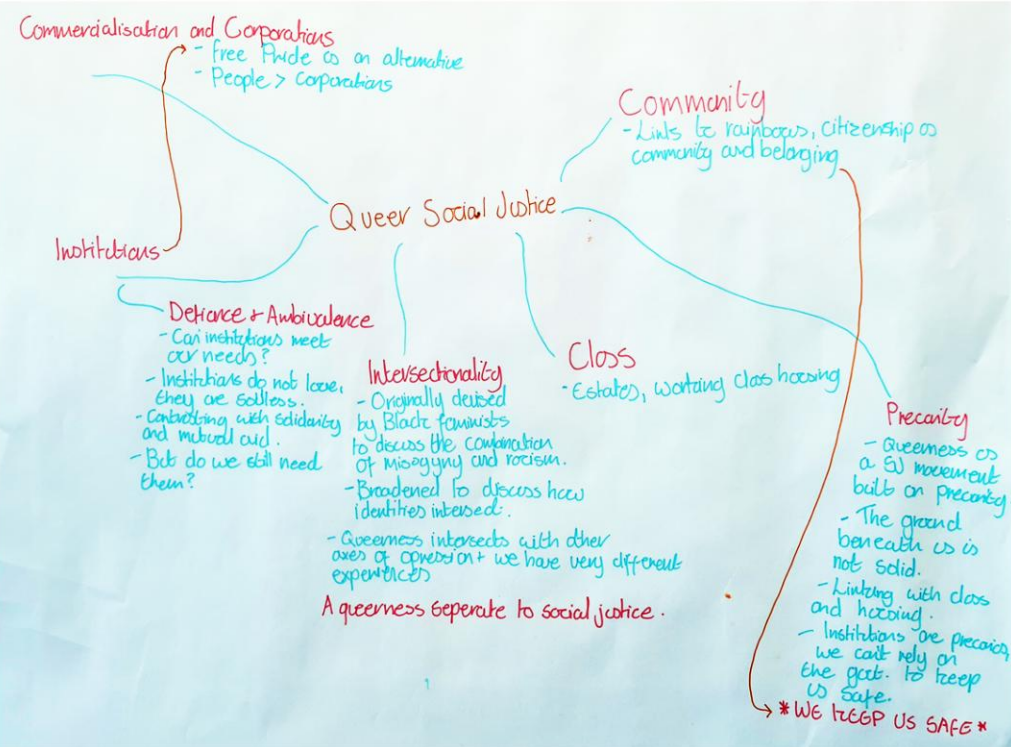 Commercialisation and Corporations
- Free Pride as an alternative
- People > Corporations
Community
- Links to rainbows, citizenship as
community and belonging
Queer Social Justice
Institutions
Defiance + Ambivalence
- Can institutions meet
our needs?
- Institutions do not love,
they are soulless.
- Contrasting with solidarity
and mutual aid.
- But do we still need
them?
Intersectionality
- Originally devised
by Black feminists
to discuss the combination
of misogyny and racism.
- Broadened to discuss how
identities intersect.
- Queerness intersects with other
axes of opression + we have very different
experiences
A queerness seperate to social justice.
Class
- Estates, working class housing
Precarity
- Queerness as
a SJ movement
built on precarity
- The ground
beneath us is
not solid.
- Linking with class
and housing.
- Institutions are precarious,
we can't rely on
the govt. to keep
us safe.
*WE KEEP US SAFE*